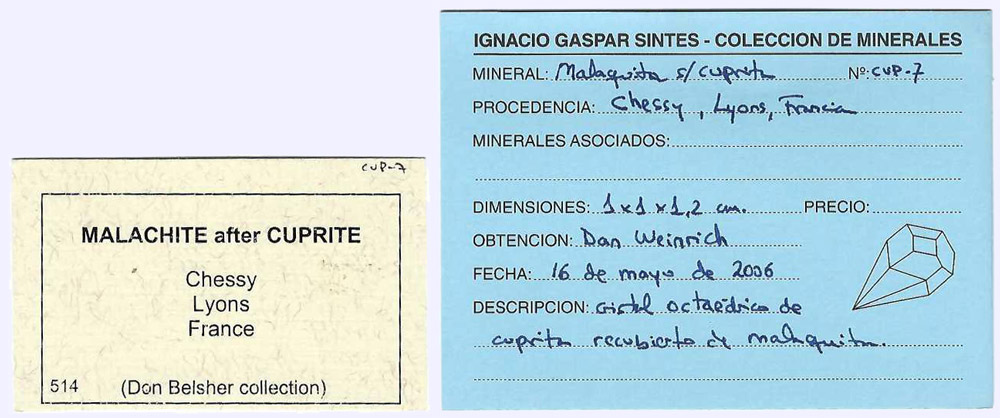 CUP-7
MALACHITE after CUPRITE
Chessy
Lyons
France
514 (Don Belsher collection)
IGNACIO GASPAR SINTES - COLECCION DE MINERALES
MINERAL: Malaquita s/ cuprita Nº: CUP-7
PROCEDENCIA: Chessy, Lyons, Francia
MINERALES ASOCIADOS:
DIMENSIONES: 1x1x1,2 cm. PRECIO:
OBTENCION: Dan Weinrich
FECHA: 16 de mayo de 2006
DESCRIPCION: cristal octaédrico de
cuprita recubierto de malaquita.